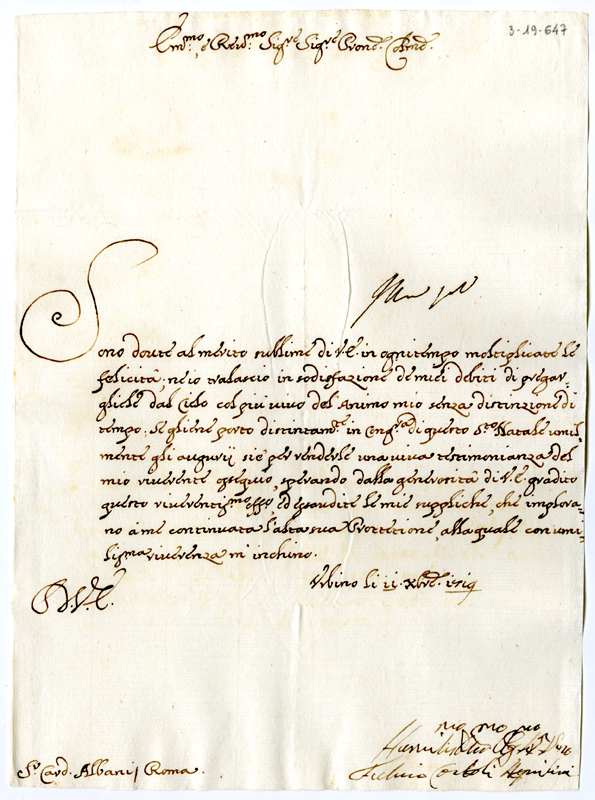 3-19-647
Em.mo, e Rev.mo Sig.re Sig.re Pron.e Col.mo
Sono dovute al merito sublime di V.E. in ogni tempo moltiplicate le
felicità; ne io tralascio in sodisfazione de miei debiti di pregar-
gliele dal Cielo col più vivo del'Animo mio senza distinzione di
tempo. Se gliene porto distintam.te in cong.ra di questo S.to Natale umil-
mente gli augurij, sie per renderle una viva testimonianza del
mio riverente ossequio, sperando dalla generosità di V.E. gradito
questo riverentis.mo offo, ed esaudite le mie suppliche che implora-
no à me continuata l'alta sua Protettione alla quale con umi-
lis.ma riverenza m'inchino.
Urbino li 11. Xbre. 1719
D.V.E.
S.r Card. Albani / Roma.